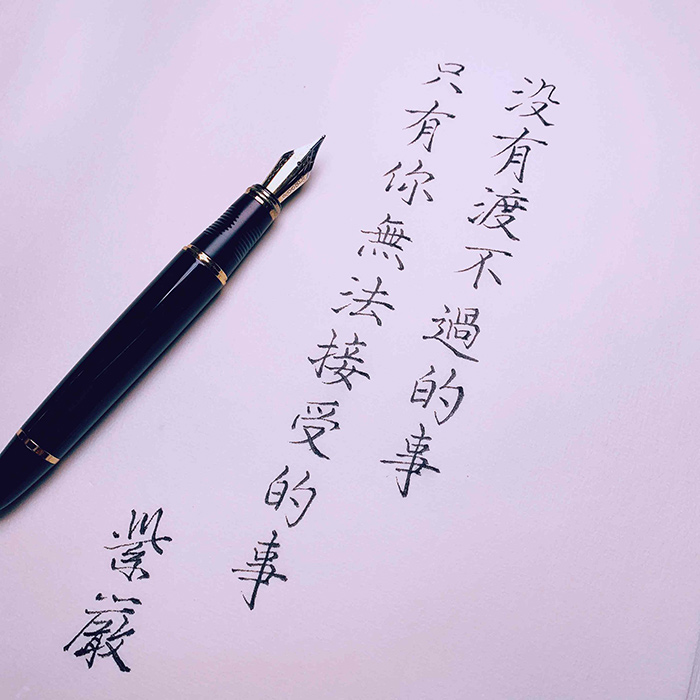 没有渡不過的事
只有你無法接受的事
紫嚴